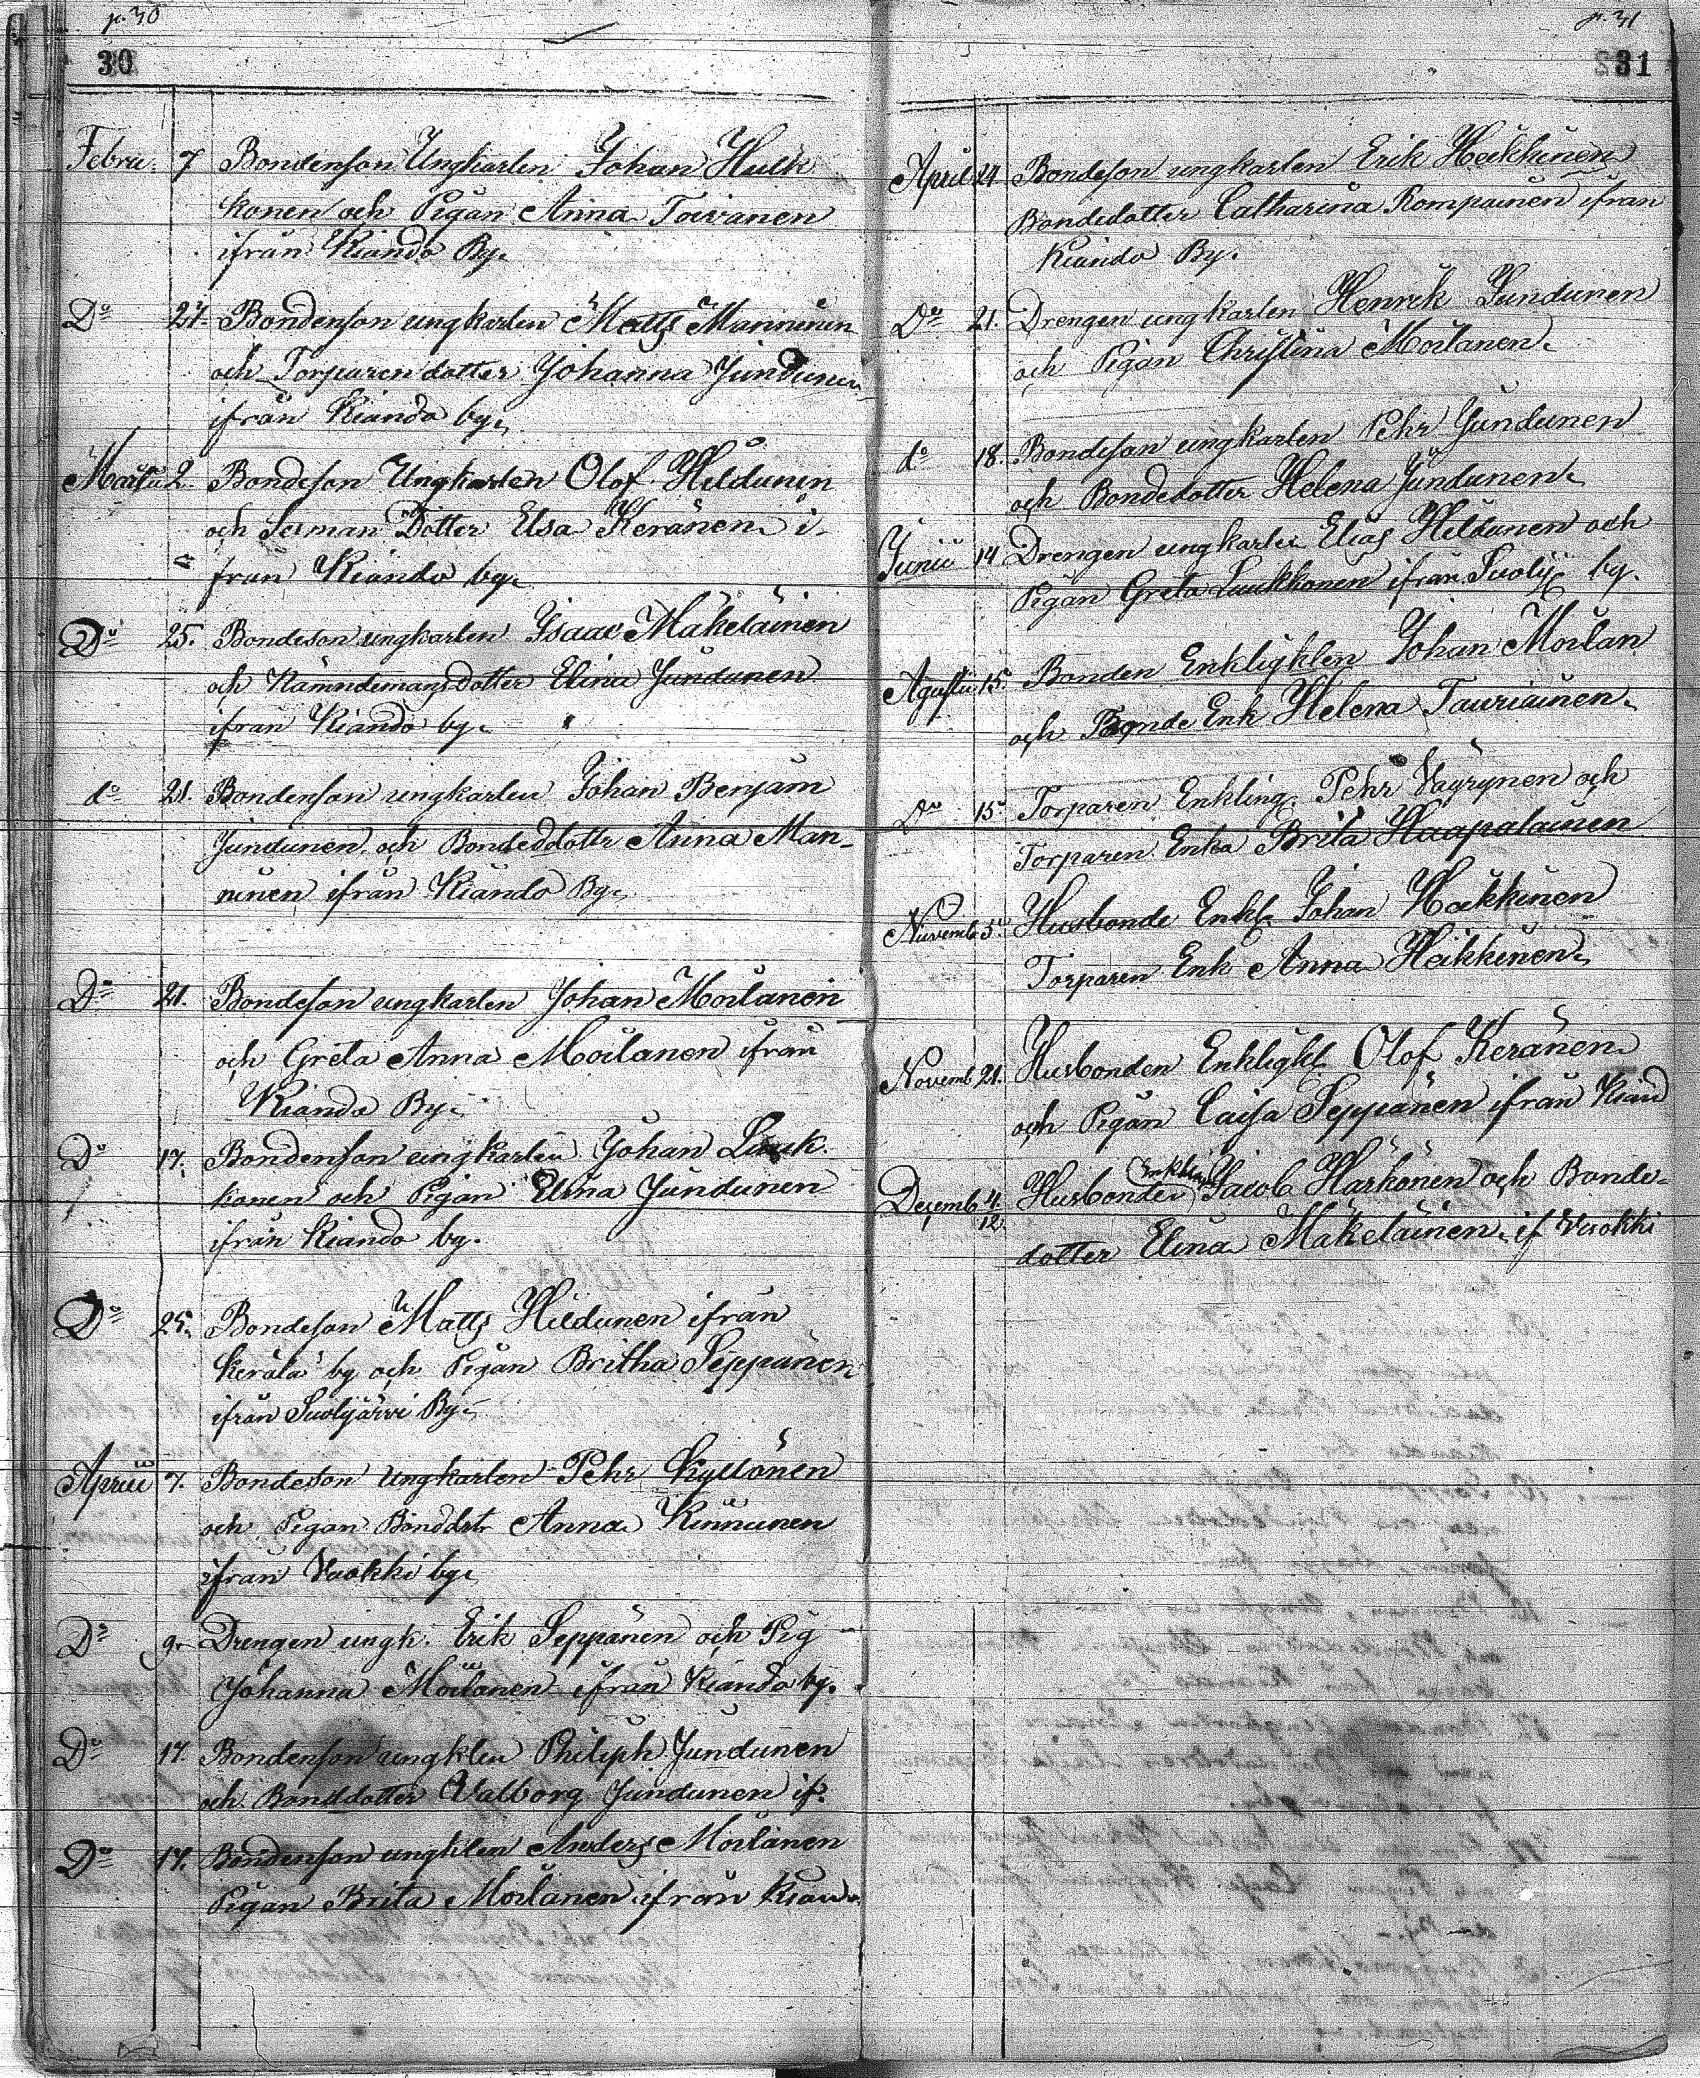 p. 30
30
Febru. 7 Bondenson Ungkarlen Johan Hulk
konen och Pigan Anna Toivanen
ifrån Kiando By.
Do 27. Bondenson ungkarlen Matts Manninen
och Torparendotter Johanna Jundunen
ifrån Kiando by.
Martii 2. Bondeson Ungkarlen Olof Hildunen
och Dotter Elsa Keränen i-
från Kiando by.
Do 25. Bondeson ungkarlen Isaac Mäkeläinen
och Nämndemansdotter Elina Jundunen
ifrån Kiando by.
do 21. Bondenson ungkarlen Johan Benjam
Jundunen och Bondeddotter Anna Man-
ninen ifrån Kiando By.
Do 21. Bondeson ungkarlen Johan Moilanen
och Greta Anna Moilanen ifrån
Kiando By.
Do 17. Bondenson ungkarlen Johan Luuk
konen och Pigan Elina Jundunen
ifrån Kiando by.
Do 25. Bondeson Matts Hildunen ifrån
Kerälä by och Pigan Britha Seppänen
ifrån Suolijärvi By.
Aprill 7. Bondeson Ungkarlen Pehr Kyllönen
och Pigan Bonddotr Anna Kinnunen
ifrån Vuokki by.
Do 9. Drengen ungk. Erik Seppänen och Pig
Johanna Moilanen ifrån Kiando by.
Do 17. Bondenson ungklen Philiph Jundunen
och Bonddotter Valborg Jundunen if.
Do 17. Bondenson ungklen Anders Moilanen
Pigan Brita Moilanen ifrån Kian.
p. 31
31
April 24 Bondeson ungkarlen Erik Heikkinen
Bondedotter Catharina Komparinen ifrån
Kiando By.
Do 21. Drengen ungkarlen Henrik Jundunen
och Pigan Christina Moilanen.
do 18. Bondeson ungkarlen Pehr Jundunen
och Bondedotter Helena Jundunen
Junii 14 Drengen ungkarlen Elias Hildunen och
Pigan Greta Luukkonen ifrån Suolij by.
Agustii 15. Bonden Enkligklen Johan Moilan
och Bonde Enk Helena Tauriainen.
Do 15. Torparen Enkling. Pehr Väyrynen och
Torparen Enka Brita Haapalainen
Nuvemb 5. Husbonde Enkl. Johan Heikkinen
Torparen Enk Anna Heikkinen
Novemb 21. Husbonden Enkligkl Olof Keränen
och Pigan Caisa Seppänen ifrån Kiand
Enkling
Decemb 4. Husbonden Jacob Härkönen och Bonde-
12
dotter Elina Mäkeläinen if Vuokki